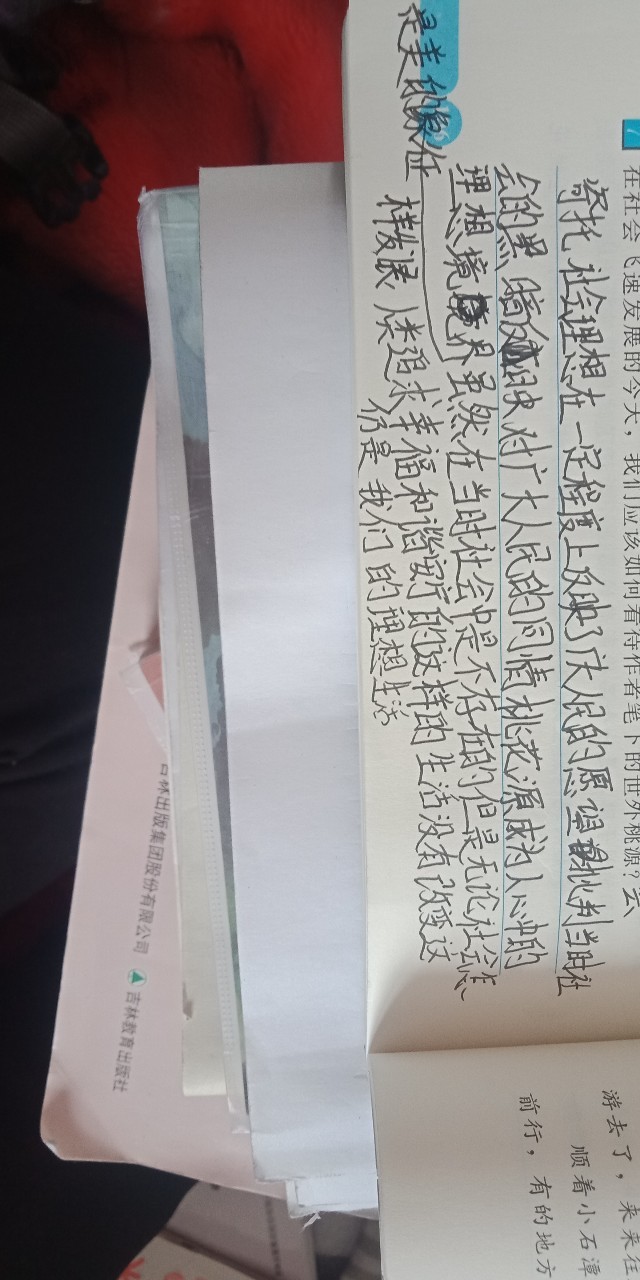 7
在社会飞速发展的今天，我们应该如何看待作者笔下的世外桃源？云
寄托社会理想在一定程度上反映了广大人民的愿望批判当时社
会的黑暗反映对广大人民的同情桃花源成为人心中的
理想境界虽然在当时社会中是不存在的但是无论社会怎
样发展人类追求幸福和谐安宁的这样的生活没有改变这
仍是我们的理想生活
是美的
游去了，来来往
顺着小石潭
前行，有的地方
吉林出版集团股份有限公司 吉林教育出版社